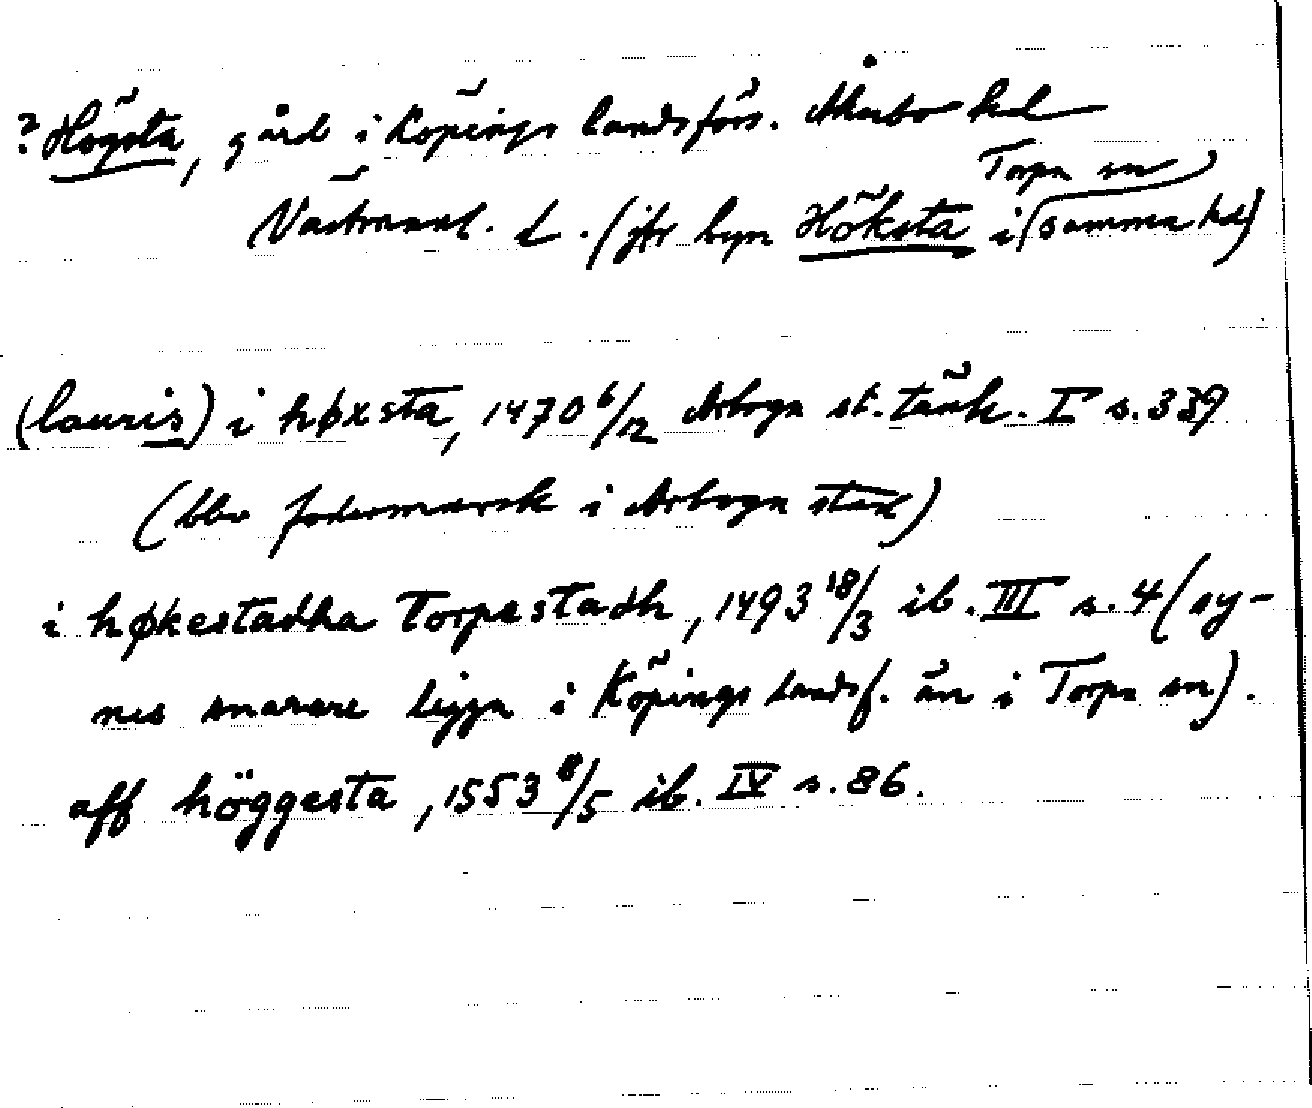 ? Högsta, gård i Köpings landsförs. Åkerbo hd
Västmanl. L. (jfr byn Höksta i Torpa sn samma hd)
(lauris) i høxsta, 1470 6/12 Arboga st. tänk. I s. 339
(blev fodermarsk i Arboga stad)
i høkestadha Torpastadh, 1493 18/3 ib. III s. 4 (sy-
nes snarare ligga i Köpings landsf. än i Torpa sn).
aff höggesta, 1553 8/5 ib. IV s. 86.